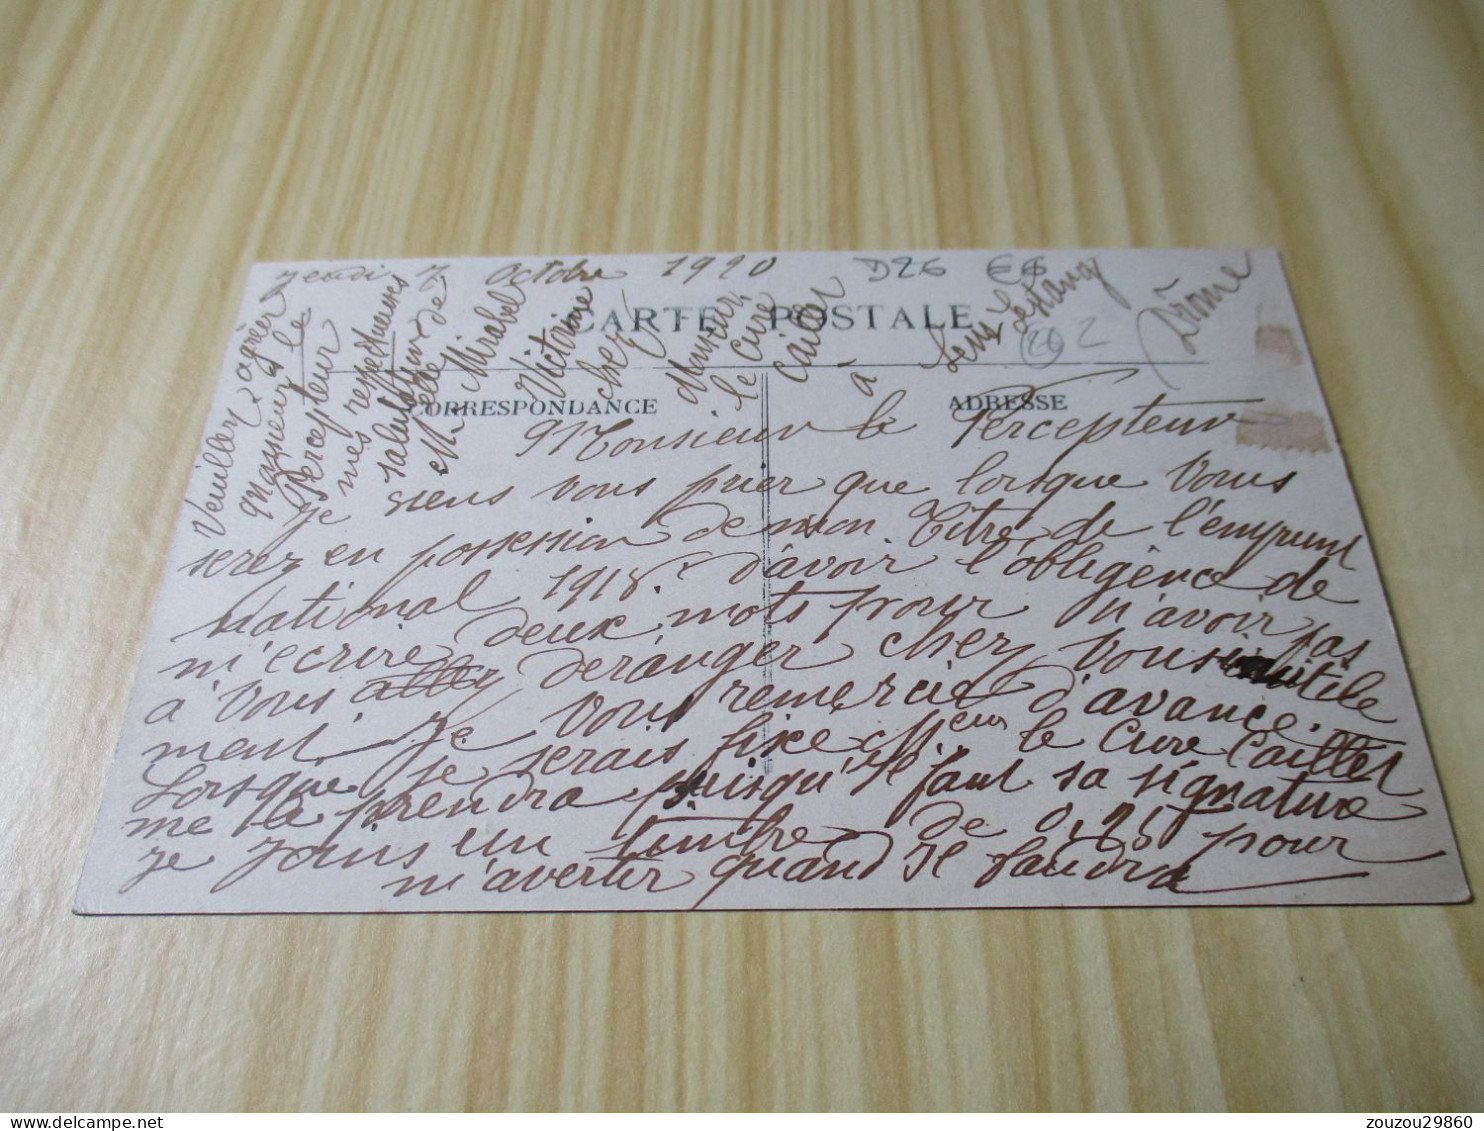 Jeudi 7 Octobre 1920
D26 E6
CARTE POSTALE
26 2
CORRESPONDANCE
ADRESSE
Monsieur le Percepteur
je viens vous prier que lorsque vous
serez en possession de mon Titre de l'emprunt
national 1918. d'avoir l'obligence de
m'ecrire deux mots pour n'avoir pas
à vous deranger chez vous inutile
ment. Je vous remercie d'avance.
Lorsque je serais fixe Mieur le Cure Caillet
me le prendra puisqu'il faut sa signature
je joins un timbre de 0,25 pour
m'avertir quand Il faudra
Veuillez agréer
Monsieur le
Percepteur
mes respectueuses
salutations de
Mlle
Mirabel
Victorine
chez
Monsieur
le Cure
Caillet
à
Lens Lestang
Drôme
zouzou29860